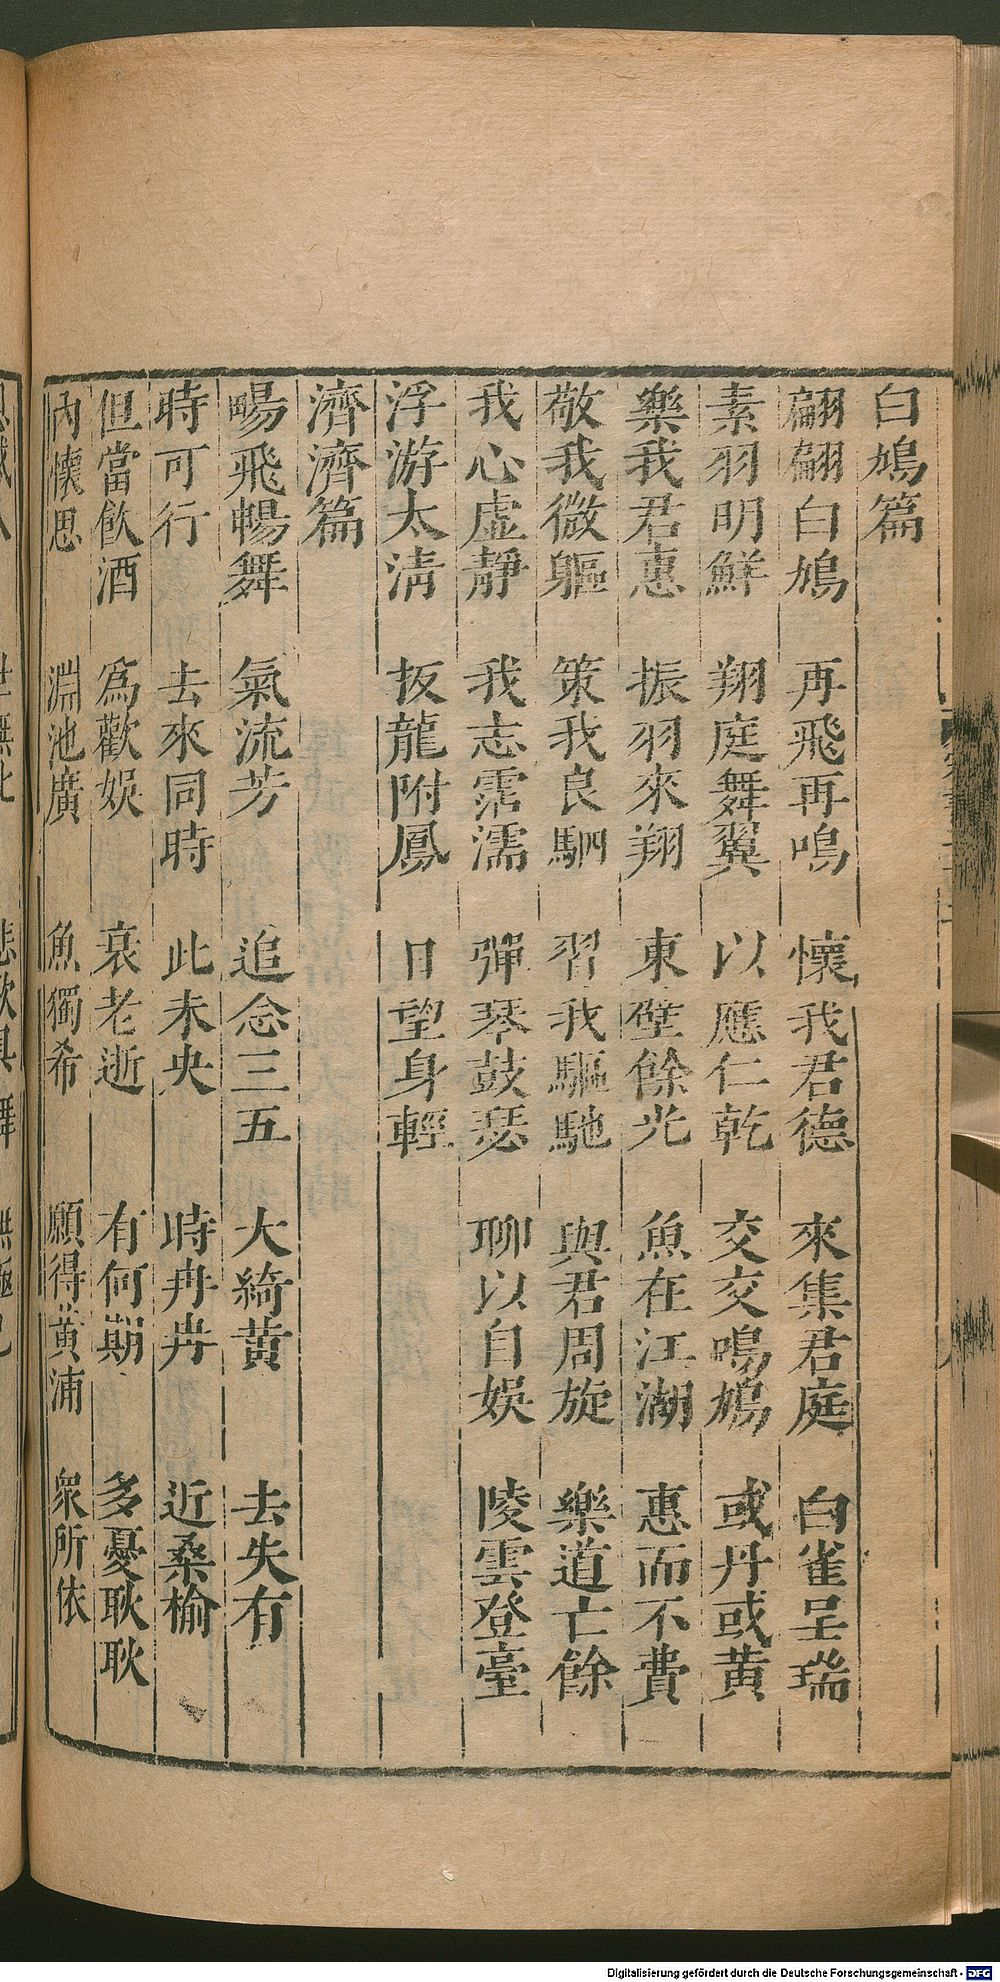 白鳩篇
翩翩白鳩　再飛再鳴　懷我君德　來集君庭　白雀呈瑞
素羽明鮮　翔庭舞翼　以應仁乾　交交鳴鳩　或丹或黄
樂我君惠　振羽來翔　東壁餘光　魚在江湖　惠而不費
敬我微軀　策我良駟　習我驅馳　與君周旋　樂道亡餘
我心虛靜　我志霑濡　彈琴鼓瑟　聊以自娛　陵雲登臺
浮游太清　扳龍附鳳　日望身輕
濟濟篇
暢飛暢舞　氣流芳　追念三五　大綺黄　去失有
時可行　去來同時　此未央　時冉冉　近桑榆
但當飲酒　爲歡娛　衰老逝　有何期　多憂耿耿
内懷思　淵池廣　魚獨希　願得黄浦　衆所依
Digitalisierung gefördert durch die Deutsche Forschungsgemeinschaft - DFG